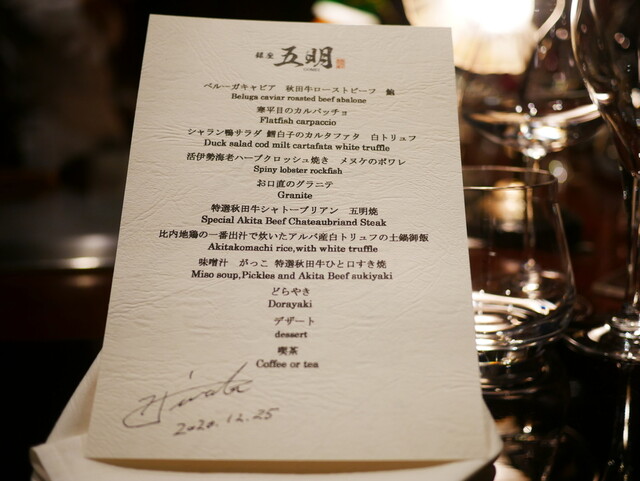 銀座 五明
GOMEI
ベルーガキャビア 秋田牛ローストビーフ 鮑
Beluga caviar roasted beef abalone
寒平目のカルパッチョ
Flatfish carpaccio
シャラン鴨サラダ 鱈白子のカルタファタ 白トリュフ
Duck salad cod milt cartafata white truffle
活伊勢海老ハーブクロッシュ焼き メヌケのポワレ
Spiny lobster rockfish
お口直のグラニテ
Granite
特選秋田牛シャトーブリアン 五明焼
Special Akita Beef Chateaubriand Steak
比内地鶏の一番出汁で炊いたアルバ産白トリュフの土鍋御飯
Akitakomachi rice,with white truffle
味噌汁 がっこ 特選秋田牛ひと口すき焼
Miso soup,Pickles and Akita Beef sukiyaki
どらやき
Dorayaki
デザート
dessert
喫茶
Coffee or tea
2020.12.25